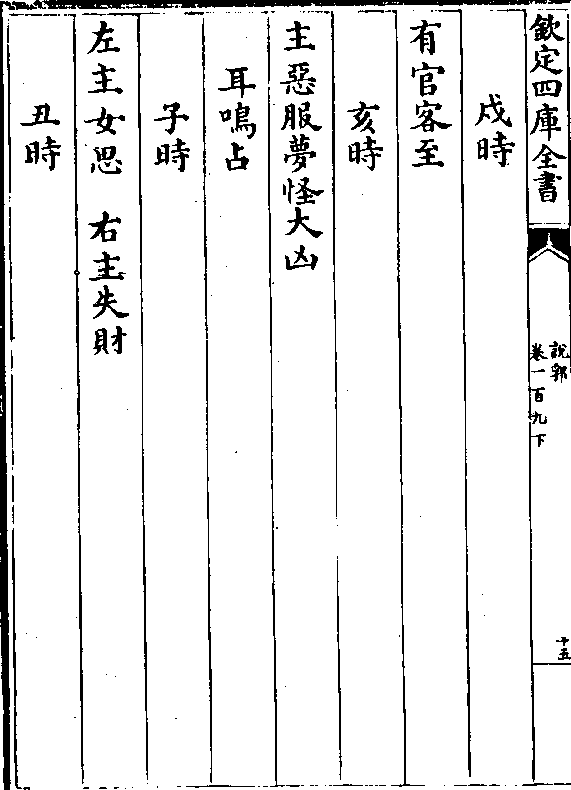 欽定四庫全書
說郛
卷一百九下
十五
戌時
有官客至
亥時
主惡服夢怪大凶
耳鳴占
子時
左主女思　右主失財
丑時